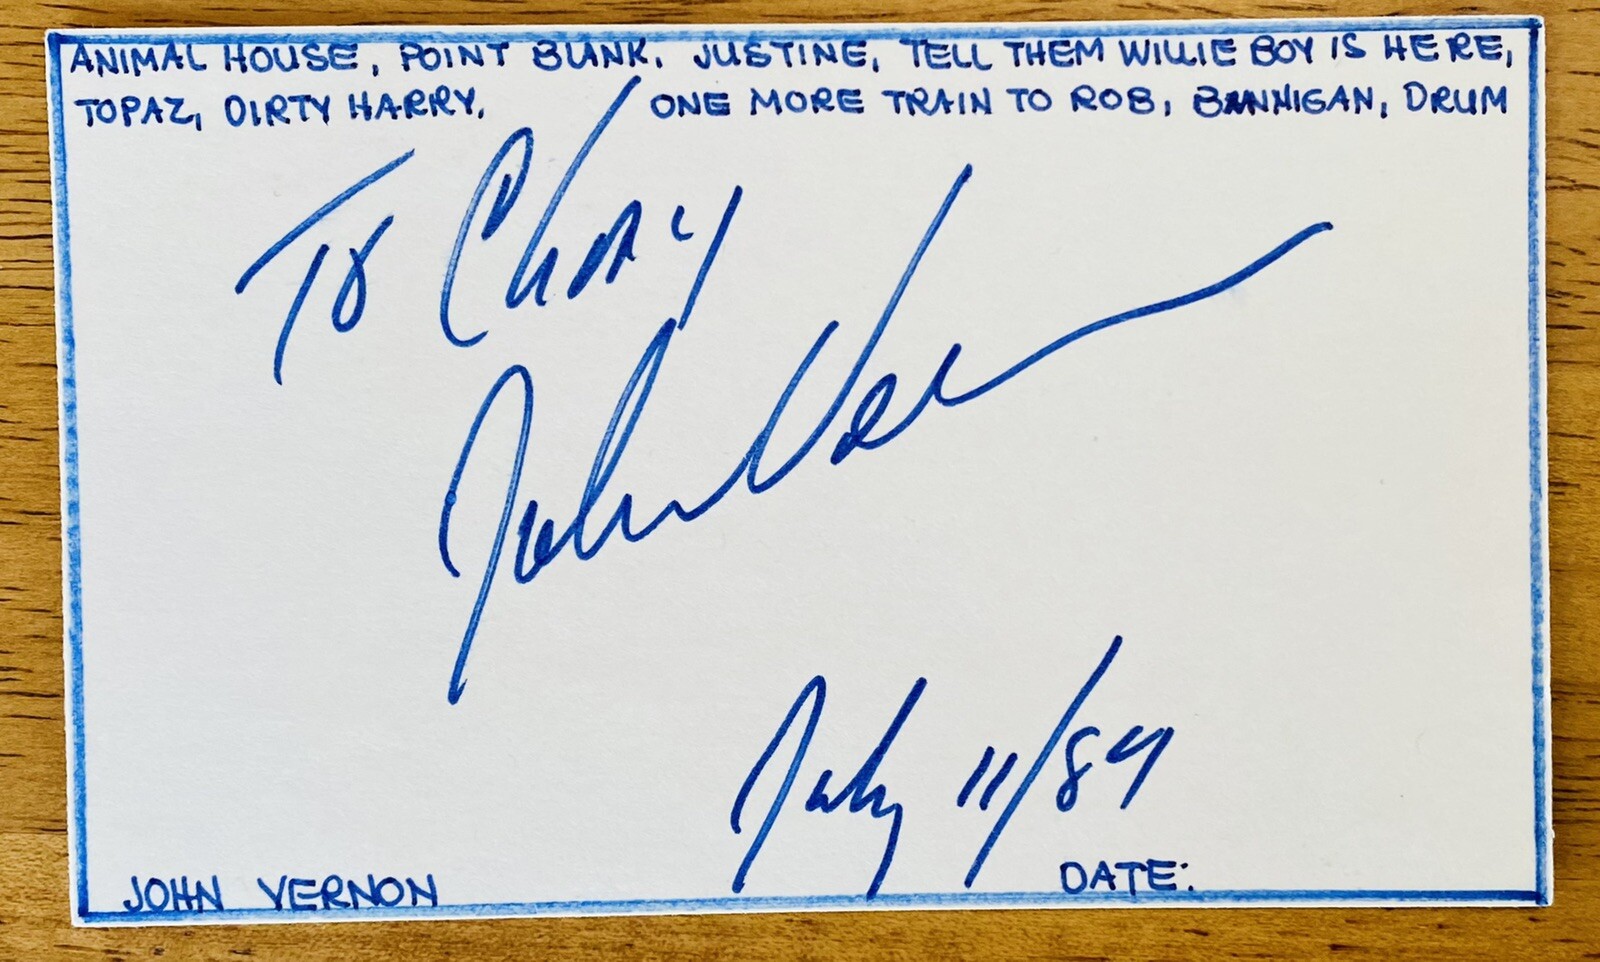 ANIMAL HOUSE, POINT BLANK, JUSTINE, TELL THEM WILLIE BOY IS HERE,
TOPAZ, DIRTY HARRY, ONE MORE TRAIN TO ROB, BANNIGAN, DRUM
TO
John Vernon
July 11/89
JOHN VERNON DATE: